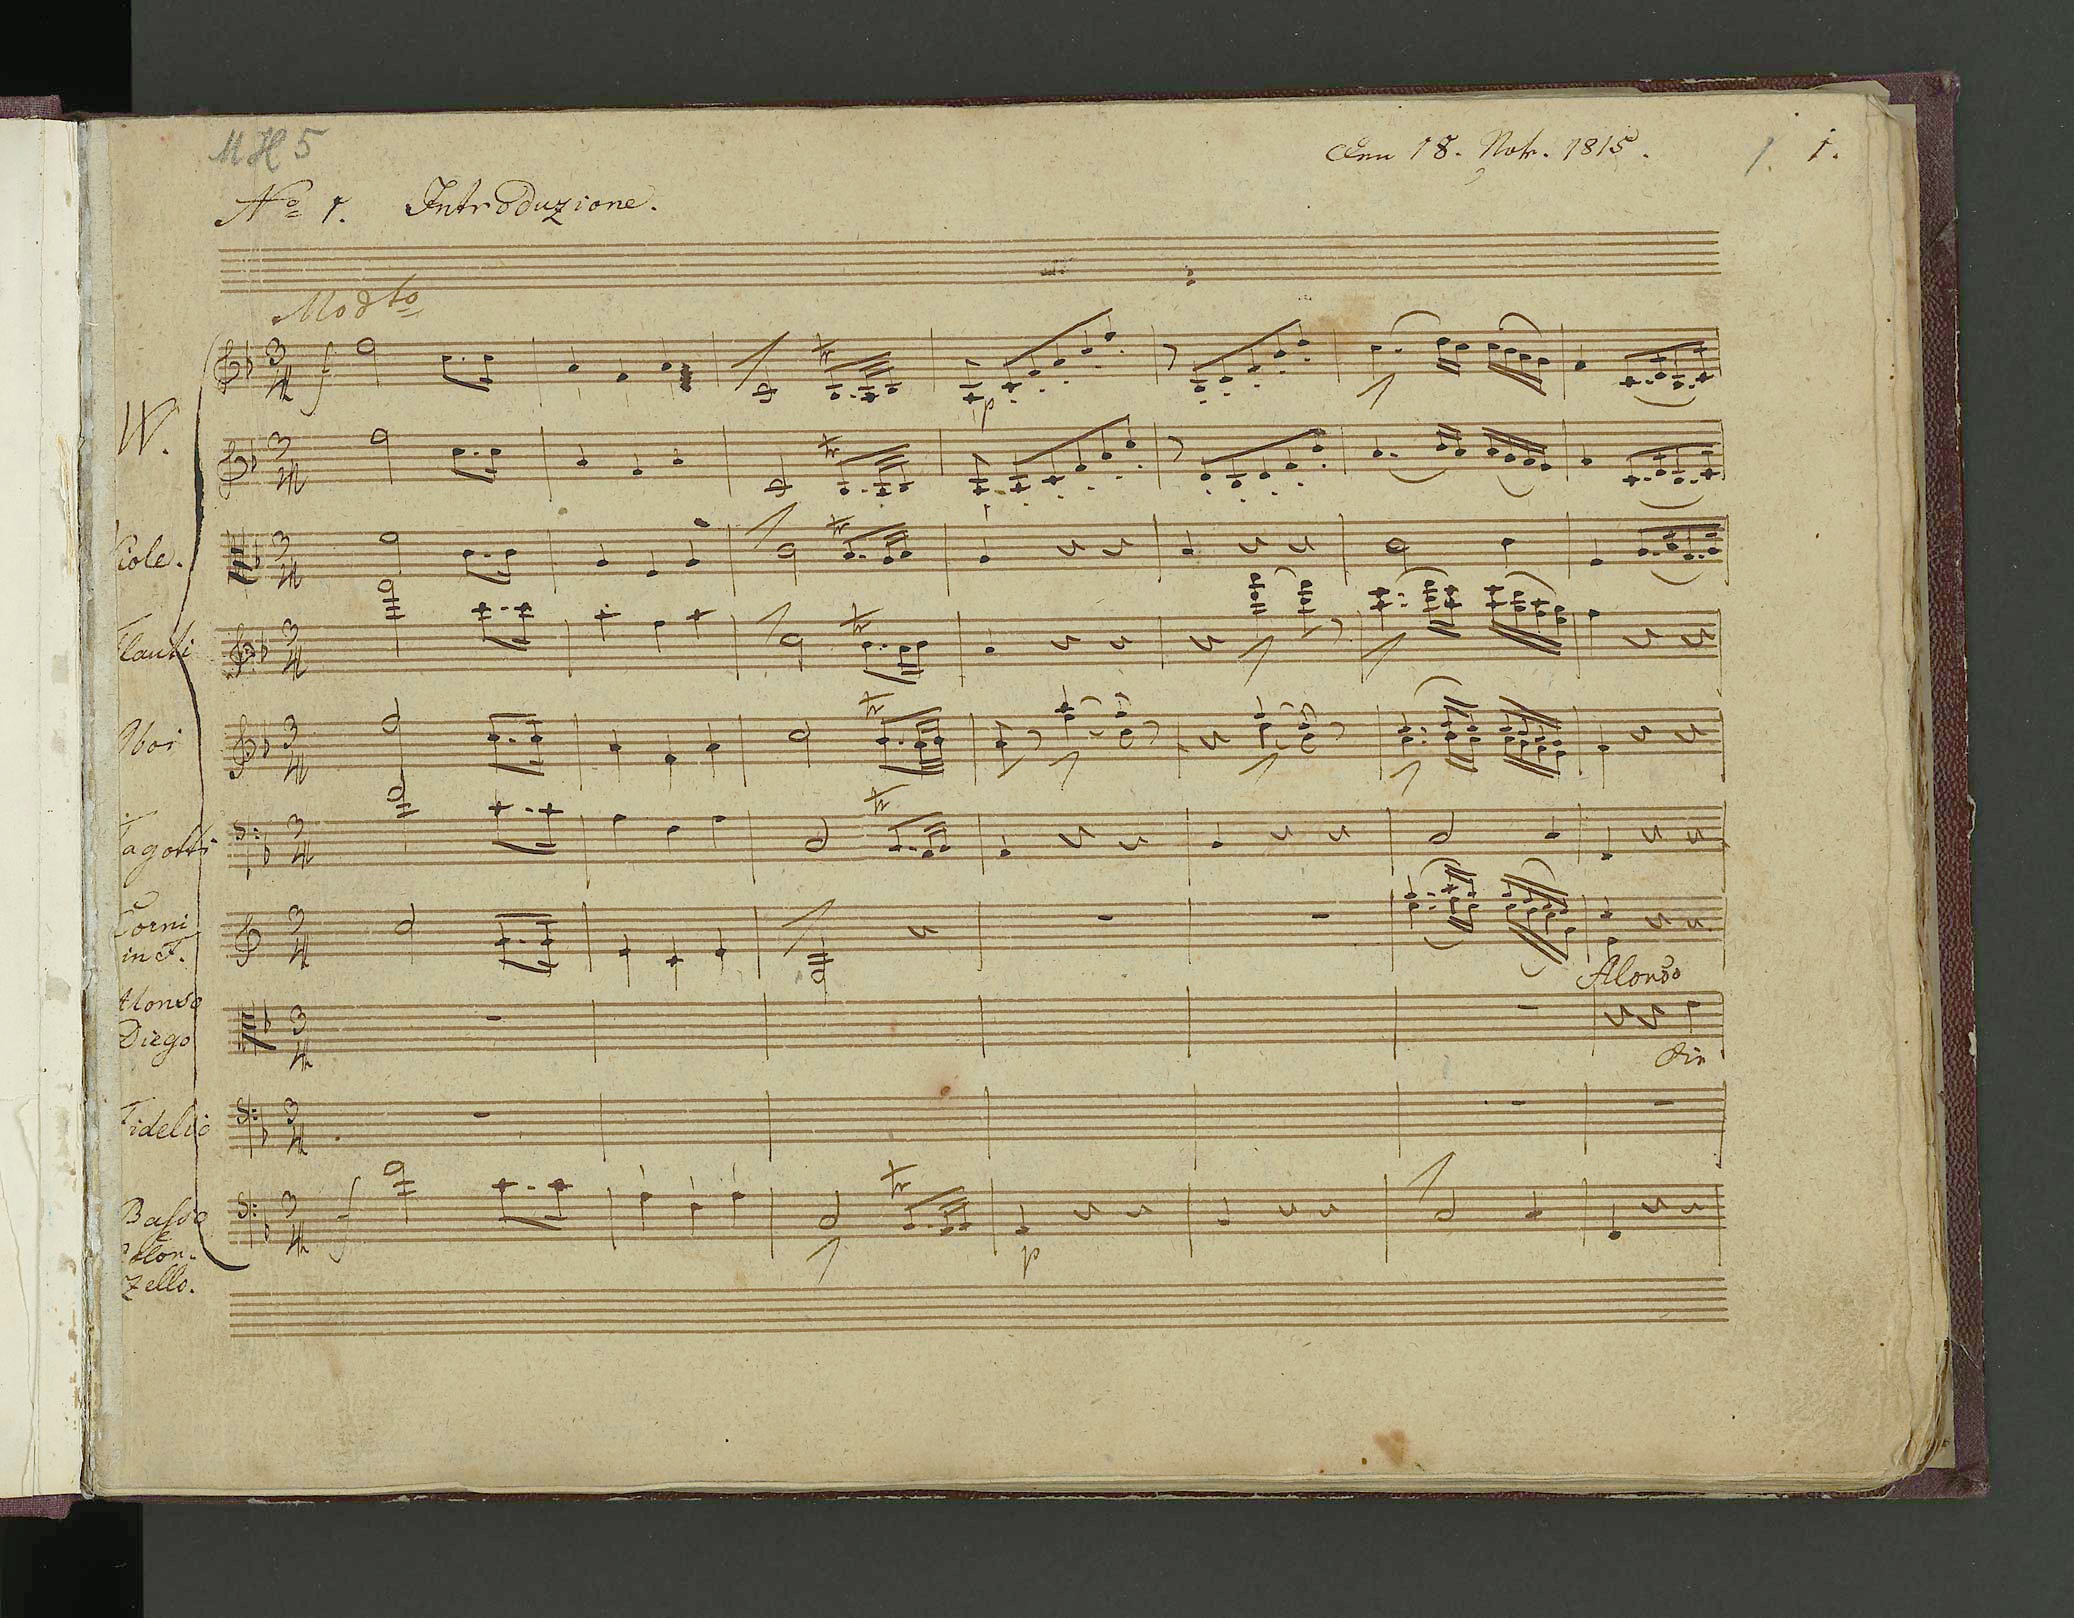 MH 5
Den 18. Nov. 1815.
1. 1.
No 1. Introduzione.
Modto
f
tr
p
VV.
tr
Viole.
tr
Flauti
tr
Oboi
tr
Fagotti
tr
Corni
in F.
Alonso
Alonso
Diego
Die
Fidelio
tr
Basso
e
Violon-
zello.
f
p